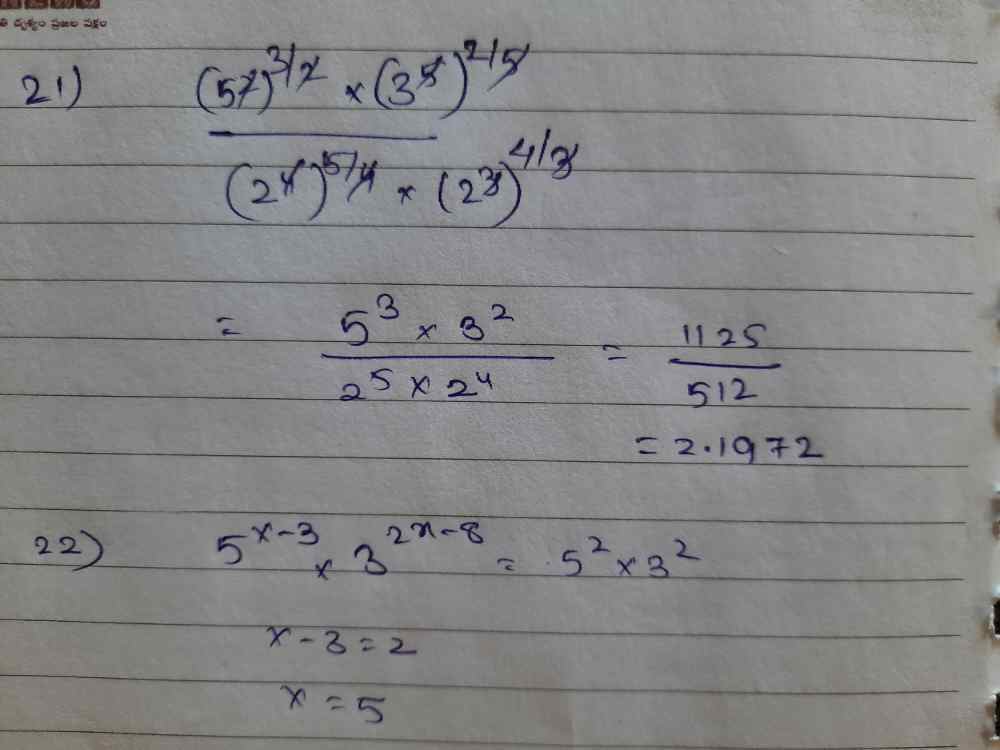 తి దృశ్యం ప్రజల పక్షం
21) (5²)^3/2 × (3⁵)^2/5
(2⁴)^5/4 × (2³)^4/3
= 5³ × 3² / 2⁵ × 2⁴ = 1125 / 512
= 2.1972
22) 5^x-3 × 3^2x-8 = 5² × 3²
x - 3 = 2
x = 5